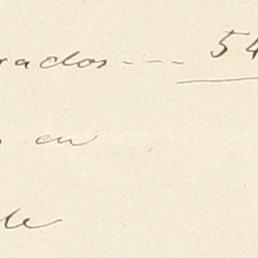 rados --- 54
en
de